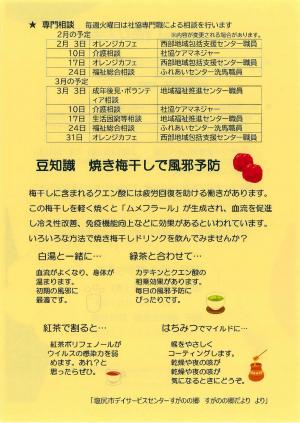 ★ 専門相談 毎週火曜日は社協専門職による相談を行います
2月の予定 ※内容が変更される場合があります。
2月 3日 オレンジカフェ 西部地域包括支援センター職員
10日 介護相談 社協ケアマネジャー
17日 オレンジカフェ 西部地域包括支援センター職員
24日 福祉総合相談 ふれあいセンター洗馬職員
3月の予定
3月 3日 成年後見・ボランティア相談 地域福祉推進センター職員
10日 介護相談 社協ケアマネジャー
17日 生活困窮等相談 地域福祉推進センター職員
24日 福祉総合相談 ふれあいセンター洗馬職員
31日 オレンジカフェ 西部地域包括支援センター職員
豆知識 焼き梅干しで風邪予防
梅干しに含まれるクエン酸には疲労回復を助ける働きがあります。
この梅干しを軽く焼くと「ムメフラール」が生成され、血流を促進
し冷え性改善、免疫機能向上などに効果があるといわれています。
いろいろな方法で焼き梅干しドリンクを飲んでみませんか?
白湯と一緒に…
血流がよくなり、身体が
温まります。
初期の風邪に
最適です。
緑茶と合わせて…
カテキンとクエン酸の
相乗効果があります。
毎日の風邪予防に
ぴったりです。
紅茶で割ると…
紅茶ポリフェノールが
ウイルスの感染力を弱
めます。あれ?と
思ったらぜひ。
はちみつでマイルドに…
喉をやさしく
コーティングします。
乾燥や夜の咳が
乾燥や夜の咳が
気になるときにどうぞ。
「塩尻市デイサービスセンターすがのの郷 すがのの郷だより より」